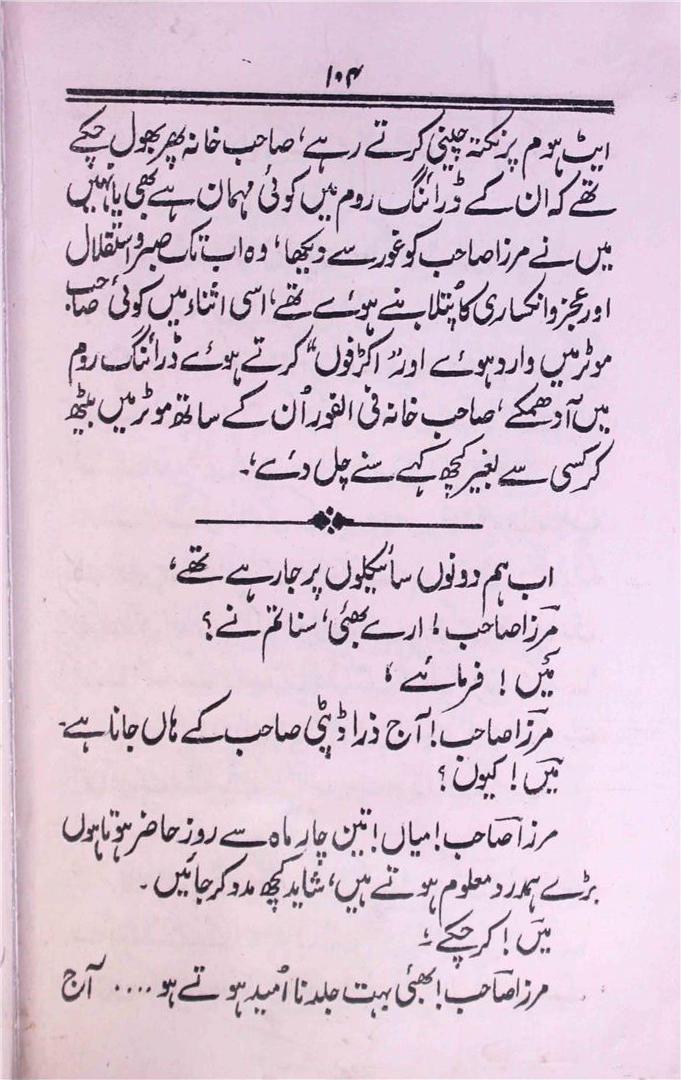 ۱۰۴
ایٹ ہوم پر نکتہ چینی کرتے رہے، صاحب خانہ پھر بھول چکے
تھے کہ ان کے ڈرائنگ روم میں کوئی مہمان ہے بھی یا نہیں
میں نے مرزا صاحب کو غور سے دیکھا، وہ اب تک صبر و استقلال
اور عجز و انکساری کا پُتلا بنے ہوئے تھے، اسی اثناء میں کوئی صاحب
موٹر میں وارد ہوئے اور "اکڑفوں" کرتے ہوئے ڈرائنگ روم
میں آدھمکے، صاحب خانہ فی الفور اُن کے ساتھ موٹر میں بیٹھ
کر کسی سے بغیر کچھ کہے سنے چل دئے،۔
اب ہم دونوں سائیکلوں پر جا رہے تھے،
مرزا صاحب! ارے بھئی، سنا تم نے؟
میں! فرمائے،
مرزا صاحب! آج ذرا ڈپٹی صاحب کے ہاں جانا ہے۔
میں! کیوں؟
مرزا صاحب! میاں! تین چار ماہ سے روز حاضر ہوتا ہوں
بڑے ہمدرد معلوم ہوتے ہیں، شاید کچھ مدد کر جائیں۔
میں! کر چکے،
مرزا صاحب! بھئی بہت جلد نا اُمید ہوتے ہو .... آج